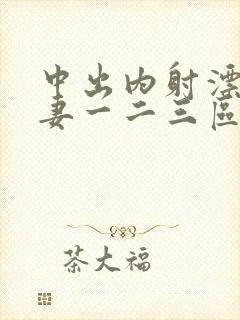 中出内射漂
妻一二三區
茶大福